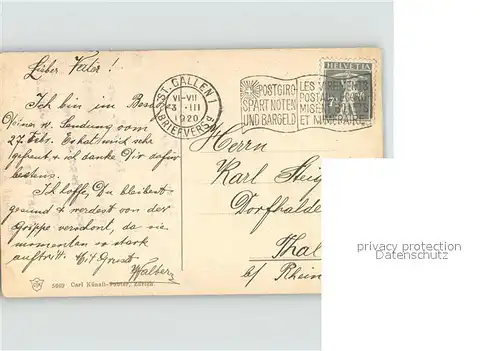 Lieber Vater!
Ich bin im Besitz
Deiner w. Sendung vom
27. Febr. Es hat mich sehr
gefreut & ich danke Dir dafür
bestens.
Ich hoffe, Du bleibest
gesund & werdest von der
Grippe verschont, da sie
momentan so stark
auftritt. Mit Gruss
ST. GALLEN 1
VI-VII
3. III
1920
BRIEFVERS.
POSTGIRO
SPART NOTEN
UND BARGELD
LES VIREMENTS
POSTAUX ÉCONO-
MISENT
ET NUMÉRAIRE
HELVETIA
Herrn
Karl
Dorfhalde
Thal
b/ Rhein
5669 Carl Künzli-Tobler, Zürich
privacy protection
Datenschutz